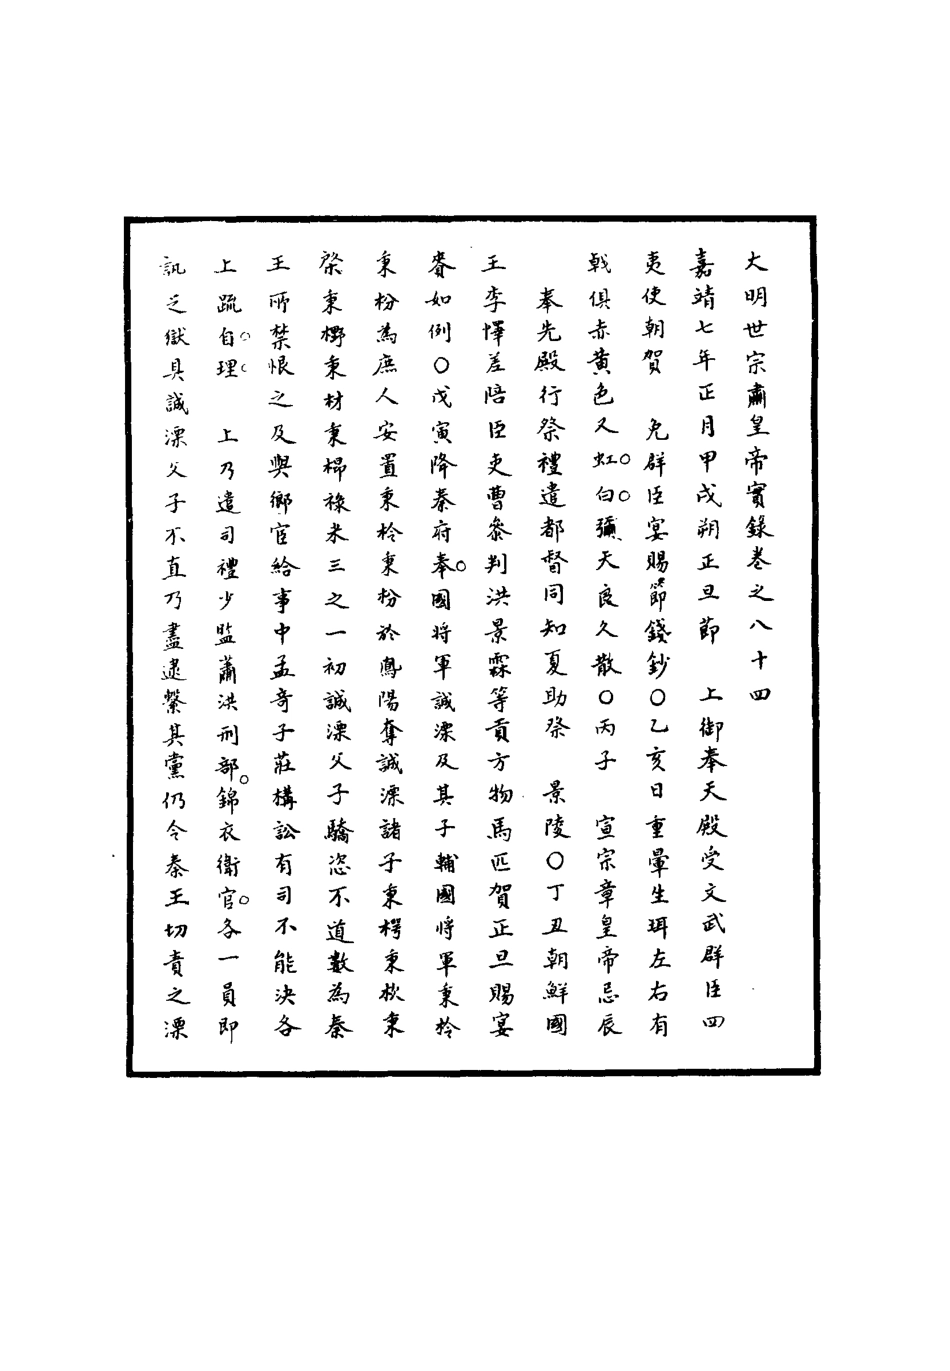 大明世宗肅皇帝實錄卷之八十四
嘉靖七年正月甲戌朔正旦節　上御奉天殿受文武群臣四
夷使朝賀　免群臣宴賜節錢鈔○乙亥日重暈生珥左右有
戟俱赤黄色又虹白彌天良久散○丙子　宣宗章皇帝忌辰
奉先殿行祭禮遣都督同知夏助祭　景陵○丁丑朝鮮國
王李懌差陪臣吏曹參判洪景霖等貢方物馬匹賀正旦賜宴
賚如例○戊寅降秦府奉國將軍誠漂及其子輔國將軍秉柃
秉枌為庶人安置秉柃秉枌於鳳陽奪誠漂諸子秉楞秉杺秉
棨秉欅秉材秉楊祿米三之一初誠漂父子驕恣不道數為秦
王所禁恨之及與鄉宦給事中孟奇子莊構訟有司不能決各
上疏自理　上乃遣司禮少監蕭洪刑部錦衣衛官各一員即
訊之獄具誠漂父子不直乃盡逮繫其黨仍令秦王切責之漂